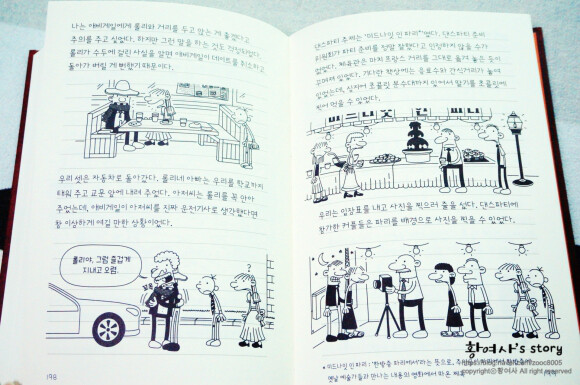 나는 애비게일에게 롤리와 거리를 두고 앉는 게 좋겠다고
주의를 주고 싶었다. 하지만 그런 말을 하는 것도 걱정되었다.
롤리가 수두에 걸린 사실을 알면 애비게일이 데이트를 취소하고
돌아가 버릴 게 뻔했기 때문이다.
우리 셋은 자동차로 돌아갔다. 롤리네 아빠는 우리를 학교까지
태워 주고 교문 앞에 내려 주었다. 아저씨는 롤리를 꼭 안아
주었는데, 애비게일이 아저씨를 진짜 운전기사로 생각했다면
참 이상하게 여길 만한 상황이었다.
롤리야, 그럼 즐겁게
지내고 오렴.
꼬옥
?
198
댄스파티 주제는 '미드나잇 인 파리*'였다. 댄스파티 준비
위원회가 파티 준비를 정말 잘했다고 인정하지 않을 수가
없었다. 체육관은 마치 프랑스 거리를 그대로 옮겨 놓은 듯이
꾸며져 있었다. 기다란 책상에는 음료수와 간식거리가 놓여
있었는데, 심지어 초콜릿 분수대까지 있어서 딸기를 초콜릿에
찍어 먹을 수 있었다.
우리는 입장표를 내고 사진을 찍으러 줄을 섰다. 댄스파티에
참가한 커플들은 파리를 배경으로 사진을 찍을 수 있었다.
* 미드나잇 인 파리 : '한밤중 파리에서'라는 뜻으로,
옛날 예술가들과 만나는 내용의 영화에서 따온 제목
황여사's story